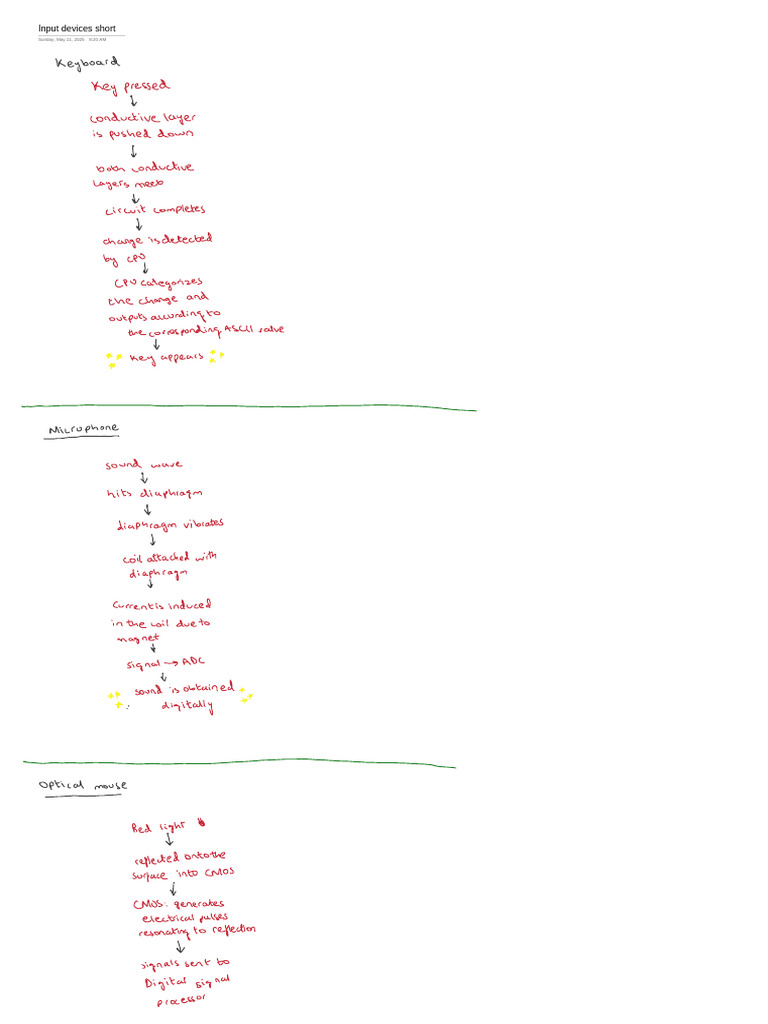 Input devices short
Sunday, May 11, 2025 9:20 AM
Keyboard
Key pressed
conductive layer
is pushed down
both conductive
layers meet
circuit completes
change is detected
by CPU
CPU categorizes
the change and
outputs according to
the corresponding ASCII value
Key appears
Microphone
sound wave
hits diaphragm
diaphragm vibrates
coil attached with
diaphragm
Current is induced
in the coil due to
magnet
signal → ADC
sound is obtained
digitally
Optical mouse
Red light
reflected onto the
surface into CMOS
CMOS: generates
electrical pulses
resonating to reflection
signals sent to
Digital signal
processor